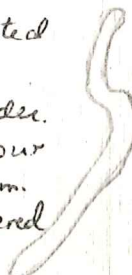 ted
der.
our
m.
ered